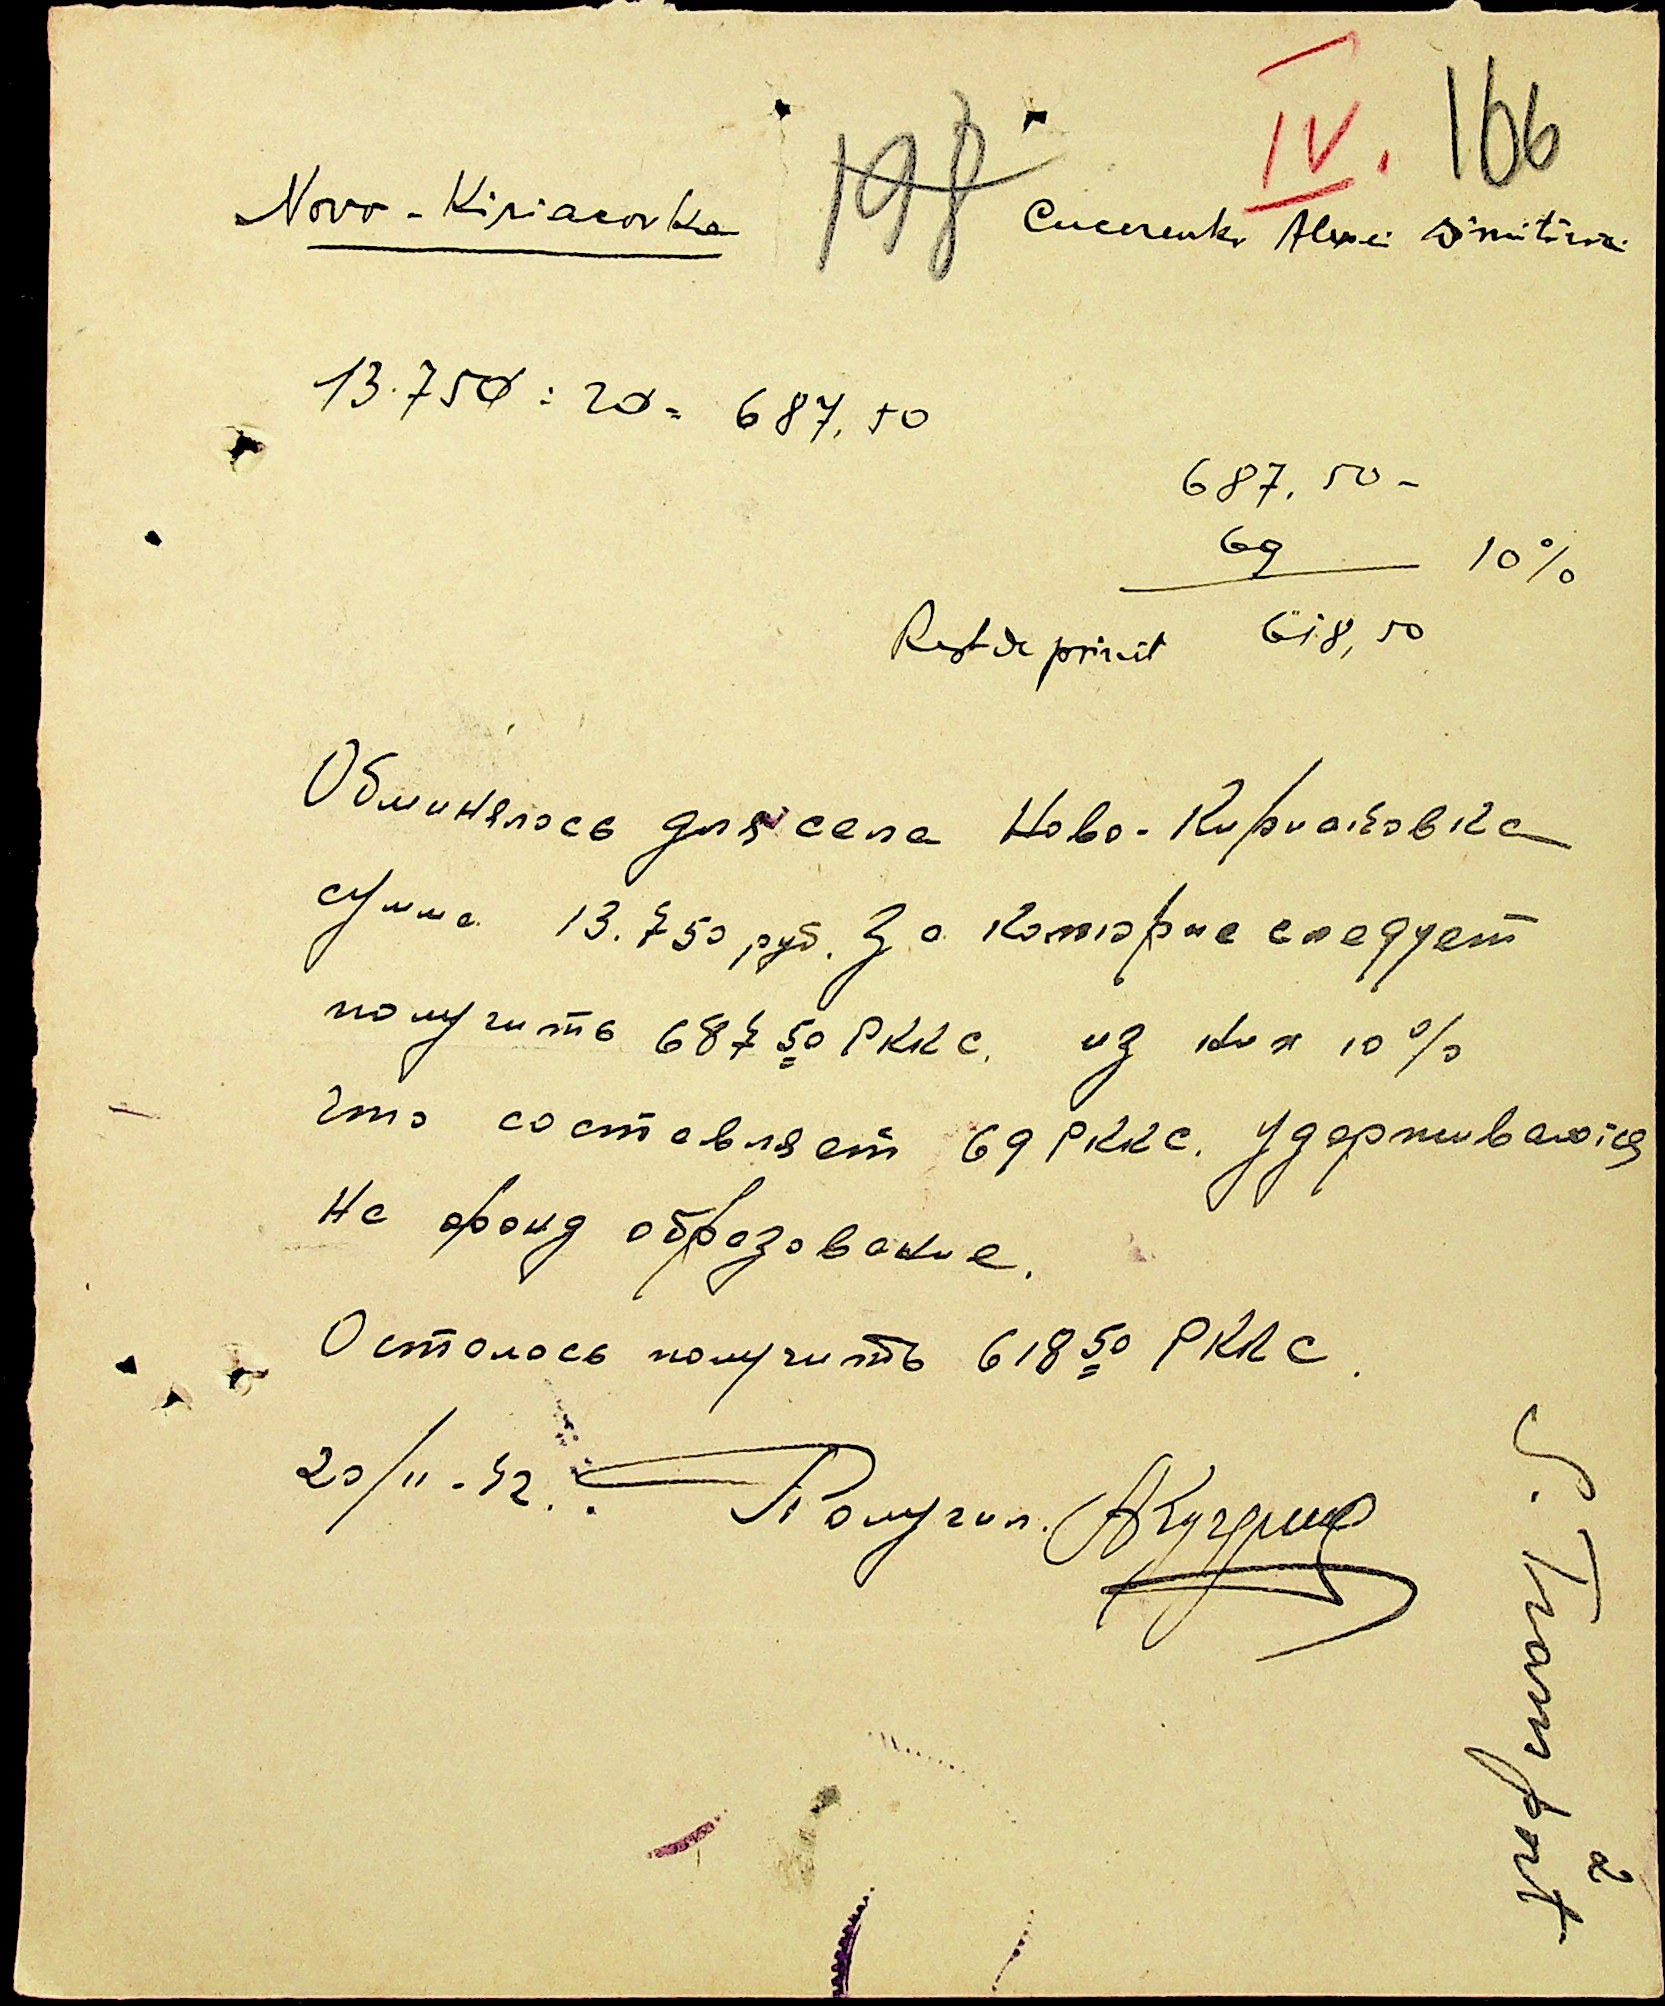 IV. 166
198
Novo-Kiriacovka
Cucerenko Alexei Dimitrie
13.750 : 20 = 687,50
687,50 -
69 10%
Rest de primit 618,50
Обминялось для села Ново-Кириаковка
сумма 13.750 руб. За которые следует
получить 687 50 РККС. из них 10%
что составляет 69 РККС. удерживаются
на фонд образование.
Осталось получить 618 50 РККС.
20/II-42. Получил.